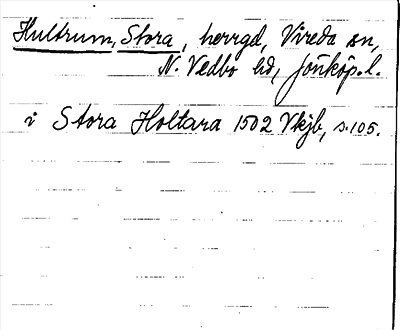 Hultrum, Stora, herrgd, Vireda sn,
N. Vedbo hd, Jönköp. l.
i Stora Holtara 1502 Vkjb, s. 105.